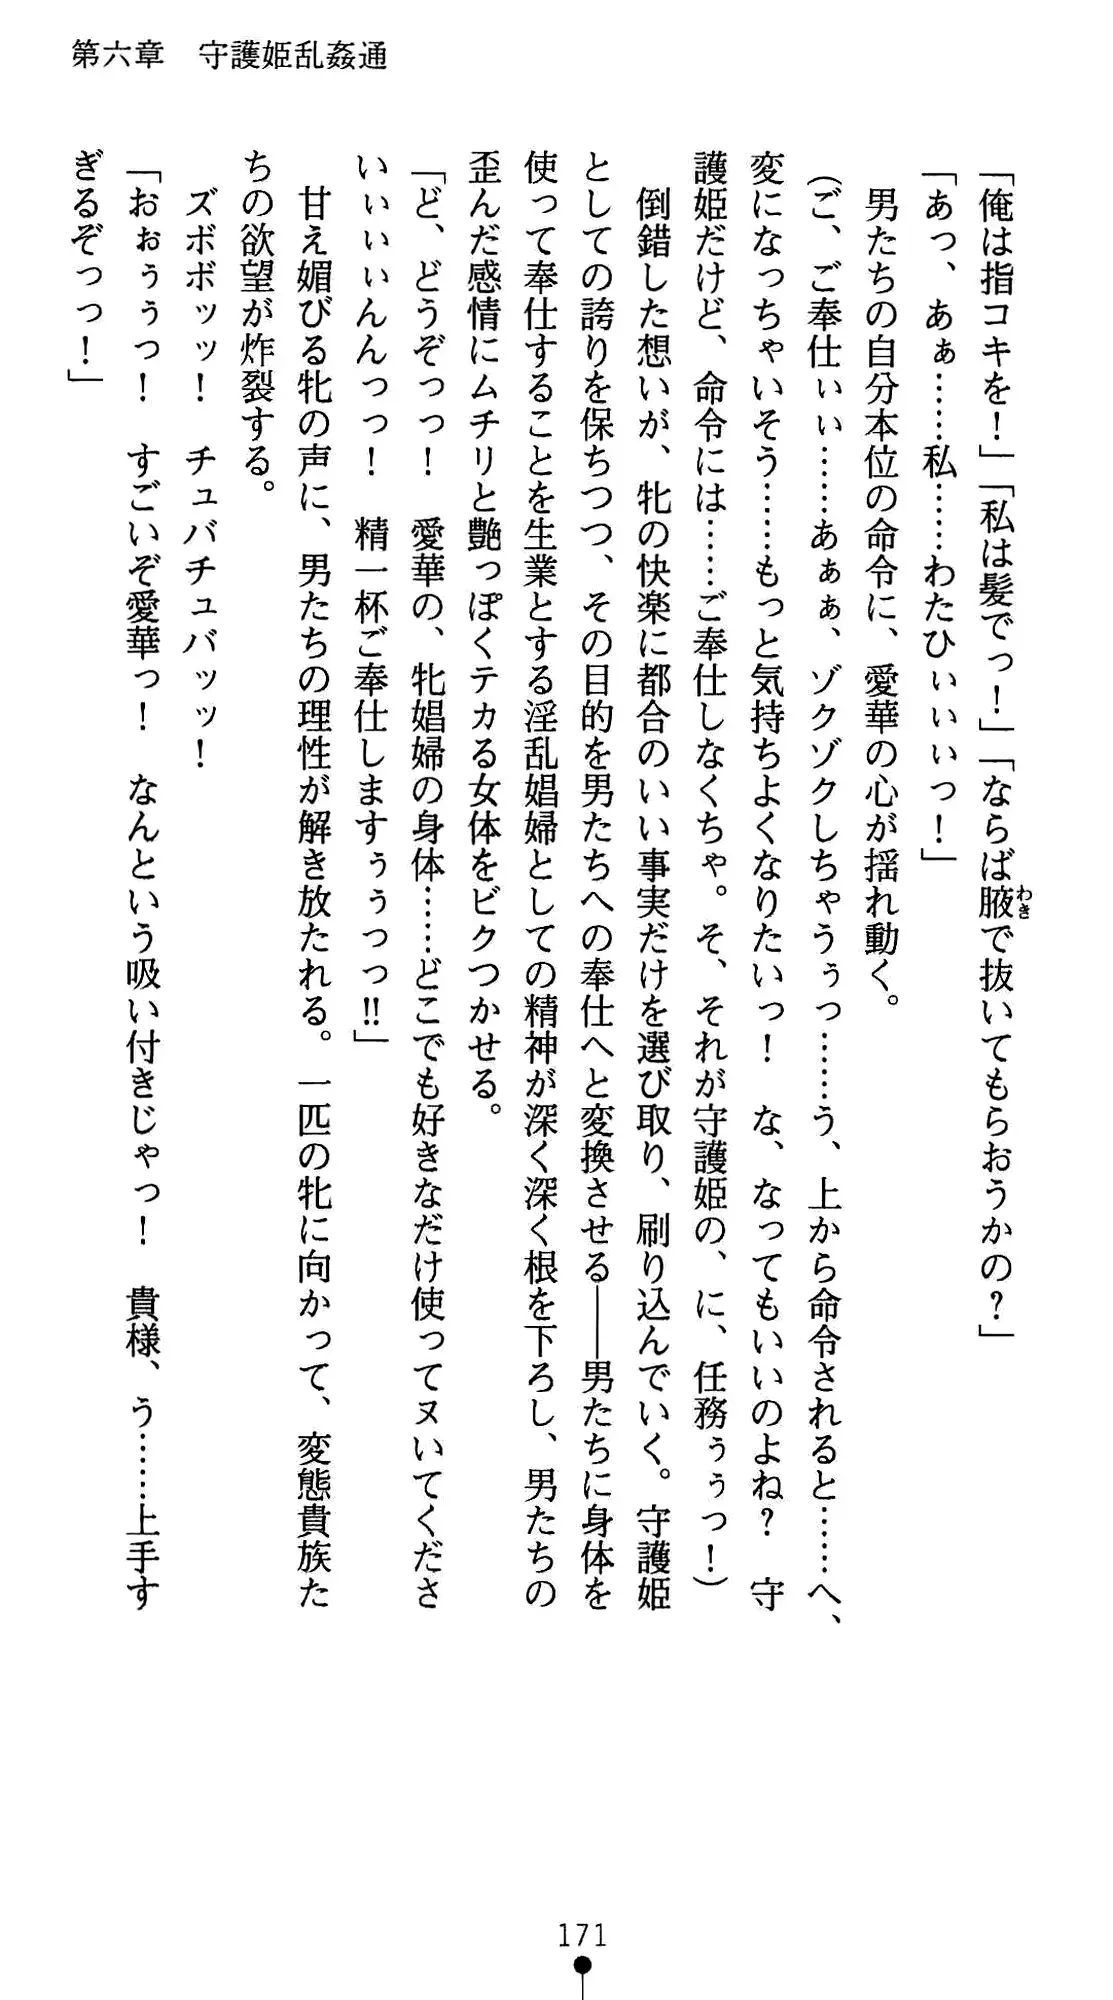 第六章　守護姫乱姦通
「俺は指コキを！」「私は髪でっ！」「ならば腋で抜いてもらおうかの？」
わき
「あっ、あぁ……私……わたひぃぃぃっ！」
　男たちの自分本位の命令に、愛華の心が揺れ動く。
（ご、ご奉仕ぃぃ……あぁぁ、ゾクゾクしちゃうぅっ……う、上から命令されると……へ、
変になっちゃいそう……もっと気持ちよくなりたいっ！　な、なってもいいのよね？　守
護姫だけど、命令には……ご奉仕しなくちゃ。そ、それが守護姫の、に、任務ぅぅっ！）
　倒錯した想いが、牝の快楽に都合のいい事実だけを選び取り、刷り込んでいく。守護姫
としての誇りを保ちつつ、その目的を男たちへの奉仕へと変換させる――男たちに身体を
使って奉仕することを生業とする淫乱娼婦としての精神が深く深く根を下ろし、男たちの
歪んだ感情にムチリと艶っぽくテカる女体をビクつかせる。
「ど、どうぞっっ！　愛華の、牝娼婦の身体……どこでも好きなだけ使ってヌいてくださ
いぃぃぃんんっっ！　精一杯ご奉仕しますぅぅっっ‼」
　甘え媚びる牝の声に、男たちの理性が解き放たれる。一匹の牝に向かって、変態貴族た
ちの欲望が炸裂する。
　ズボボッッ！　チュバチュバッッ！
「おぉぅぅっ！　すごいぞ愛華っ！　なんという吸い付きじゃっ！　貴様、う……上手す
ぎるぞっっ！」
171